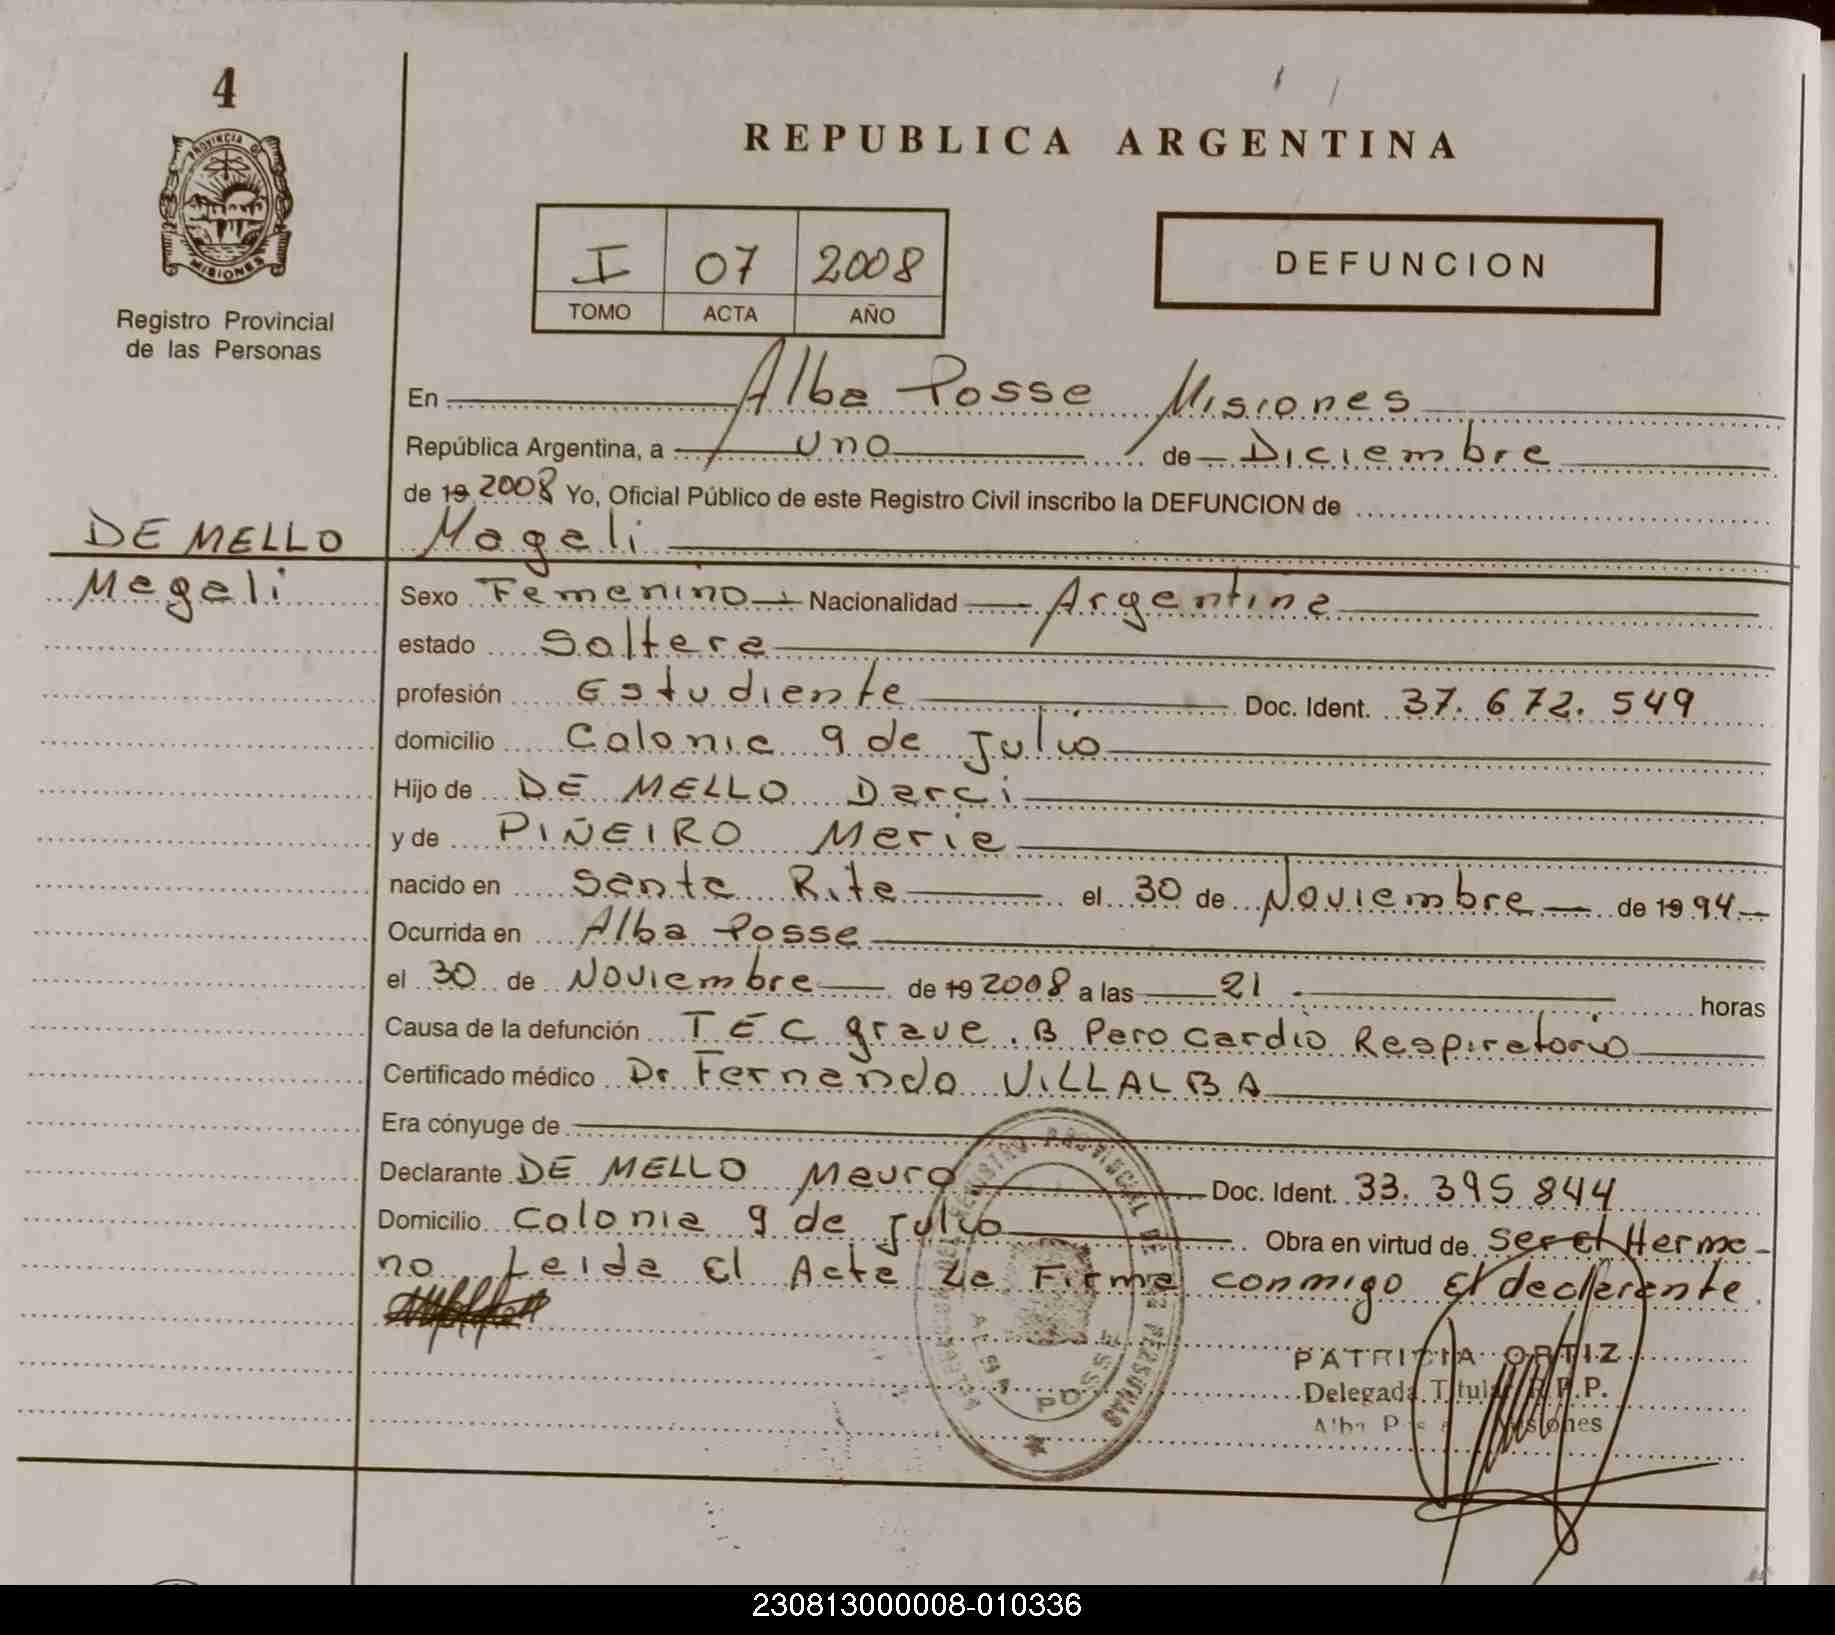 4
PROVINCIA DE
MISIONES
Registro Provincial
de las Personas
REPUBLICA ARGENTINA
I 07 2008
TOMO ACTA AÑO
DEFUNCION
En Alba Posse Misiones
República Argentina, a uno de Diciembre
de 19 2008 Yo, Oficial Público de este Registro Civil inscribo la DEFUNCION de
DE MELLO Magali
Magali
Sexo Femenino Nacionalidad Argentina
estado Soltera
profesión Estudiante Doc. Ident. 37.672.549
domicilio Colonia 9 de Julio
Hijo de DE MELLO Darci
y de PIÑEIRO Maria
nacido en Santa Rita el 30 de Noviembre de 1994
Ocurrida en Alba Posse
el 30 de Noviembre de 19 2008 a las 21 horas
Causa de la defunción TEC grave. B Paro Cardio Respiratorio
Certificado médico Dr Fernando VILLALBA
Era cónyuge de
Declarante DE MELLO Mauro Doc. Ident. 33.395844
Domicilio Colonia 9 de Julio Obra en virtud de Ser el Herma-
no Leida El Acta La Firma conmigo El declarante
PATRICIA ORTIZ
Delegada Titular R.P.P.
Alba Posse Misiones
REGISTRO PROVINCIAL DE LAS PERSONAS
ALBA POSSE
230813000008-010336